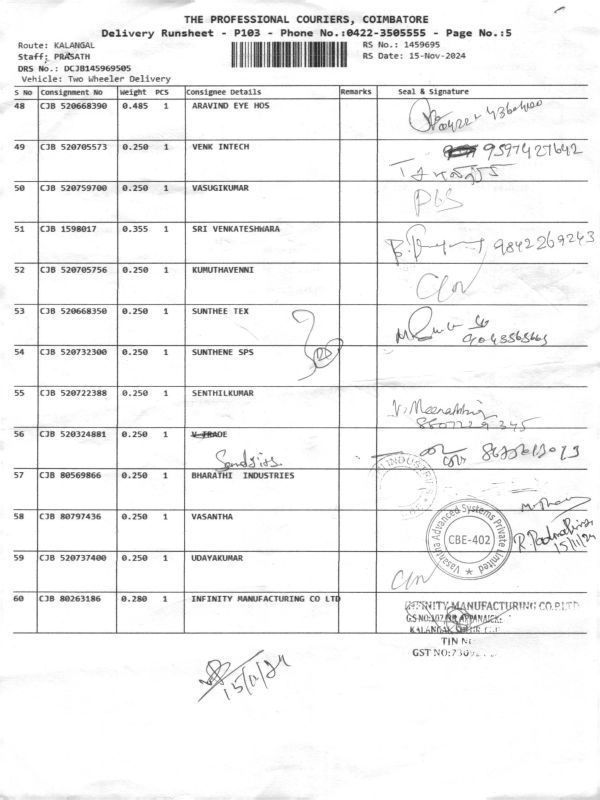 THE PROFESSIONAL COURIERS, COIMBATORE
Delivery Runsheet - P103 - Phone No.:0422-3505555 - Page No.:5
Route: KALANGAL
RS No.: 1459695
Staff: PRASATH
RS Date: 15-Nov-2024
DRS No.: DCJB145969505
Vehicle: Two Wheeler Delivery
S No Consignment No Weight PCS Consignee Details Remarks Seal & Signature
48 CJB 520668390 0.485 1 ARAVIND EYE HOS
49 CJB 520705573 0.250 1 VENK INTECH 9597427642
50 CJB 520759700 0.250 1 VASUGIKUMAR
51 CJB 1598017 0.355 1 SRI VENKATESHWARA 9842269243
52 CJB 520705756 0.250 1 KUMUTHAVENNI
53 CJB 520668350 0.250 1 SUNTHEE TEX
54 CJB 520732300 0.250 1 SUNTHENE SPS
55 CJB 520722388 0.250 1 SENTHILKUMAR
56 CJB 520324881 0.250 1 V TRADE
57 CJB 80569866 0.250 1 BHARATHI INDUSTRIES
58 CJB 80797436 0.250 1 VASANTHA
Vasantha Advanced Systems Private Limited
CBE-402
15/11/24
59 CJB 520737400 0.250 1 UDAYAKUMAR
60 CJB 80263186 0.280 1 INFINITY MANUFACTURING CO LTD
INFINITY MANUFACTURING CO.P.LTD
TIN
GST NO:
15/11/24